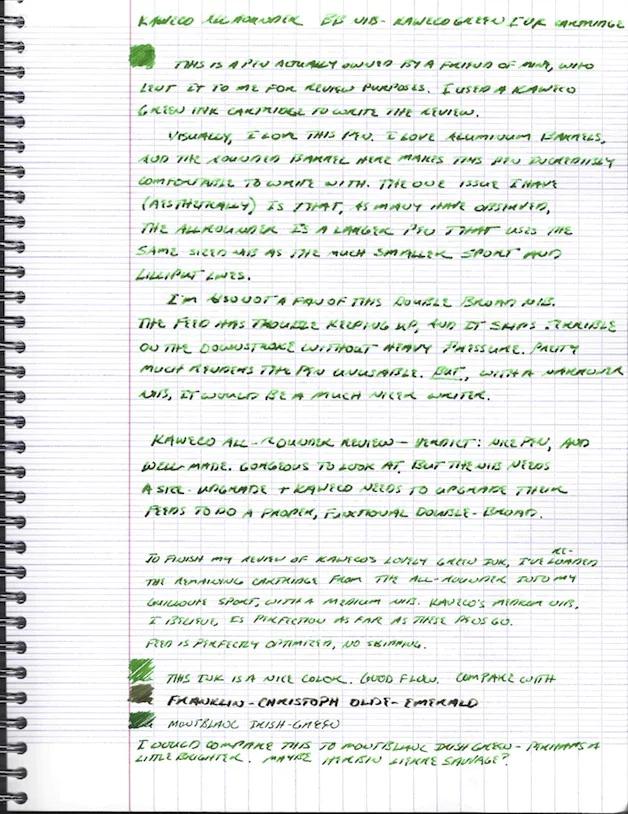 KAWECO ALLROUNDER BB NIB - KAWECO GREEN INK CARTRIDGE
THIS IS A PEN ACTUALLY OWNED BY A FRIEND OF MINE, WHO
LENT IT TO ME FOR REVIEW PURPOSES. I USED A KAWECO
GREEN INK CARTRIDGE TO WRITE THE REVIEW.
VISUALLY, I LOVE THIS PEN. I LOVE ALUMINUM BARRELS,
AND THE ROUNDED BARREL HERE MAKES THIS PEN INCREDIBLY
COMFORTABLE TO WRITE WITH. THE ONE ISSUE I HAVE
(AESTHETICALLY) IS THAT, AS MANY HAVE OBSERVED,
THE ALLROUNDER IS A LARGER PEN THAT USES THE
SAME SIZED NIB AS THE MUCH SMALLER SPORT AND
LILLIPUT LINES.
I'M ALSO NOT A FAN OF THIS DOUBLE BROAD NIB.
THE FEED HAS TROUBLE KEEPING UP, AND IT SKIPS TERRIBLE
ON THE DOWNSTROKE WITHOUT HEAVY PRESSURE. PRETTY
MUCH RENDERS THE PEN UNUSABLE. BUT, WITH A NARROWER
NIB, IT WOULD BE A MUCH NICER WRITER.
KAWECO ALL-ROUNDER REVIEW - VERDICT: NICE PEN, AND
WELL-MADE. GORGEOUS TO LOOK AT. BUT THE NIB NEEDS
A SIZE-UPGRADE + KAWECO NEEDS TO UPGRADE THEIR
FEEDS TO DO A PROPER, FUNCTIONAL DOUBLE-BROAD.
TO FINISH MY REVIEW OF KAWECO'S LOVELY GREEN INK, I'VE RE-LOADED
THE REMAINING CARTRIDGE FROM THE ALL-ROUNDER INTO MY
GUILLOCHE SPORT, WITH A MEDIUM NIB. KAWECO'S MEDIUM NIB,
I BELIEVE, IS PERFECTION AS FAR AS THESE PENS GO.
FEED IS PERFECTLY OPTIMIZED, NO SKIPPING.
THIS INK IS A NICE COLOR. GOOD FLOW. COMPARE WITH
FRANKLIN-CHRISTOPH OLDE-EMERALD
MONTBLANC IRISH-GREEN
I WOULD COMPARE THIS TO MONTBLANC IRISH GREEN - PERHAPS A
LITTLE BRIGHTER. MAYBE HERBIN LIERRE SAUVAGE?